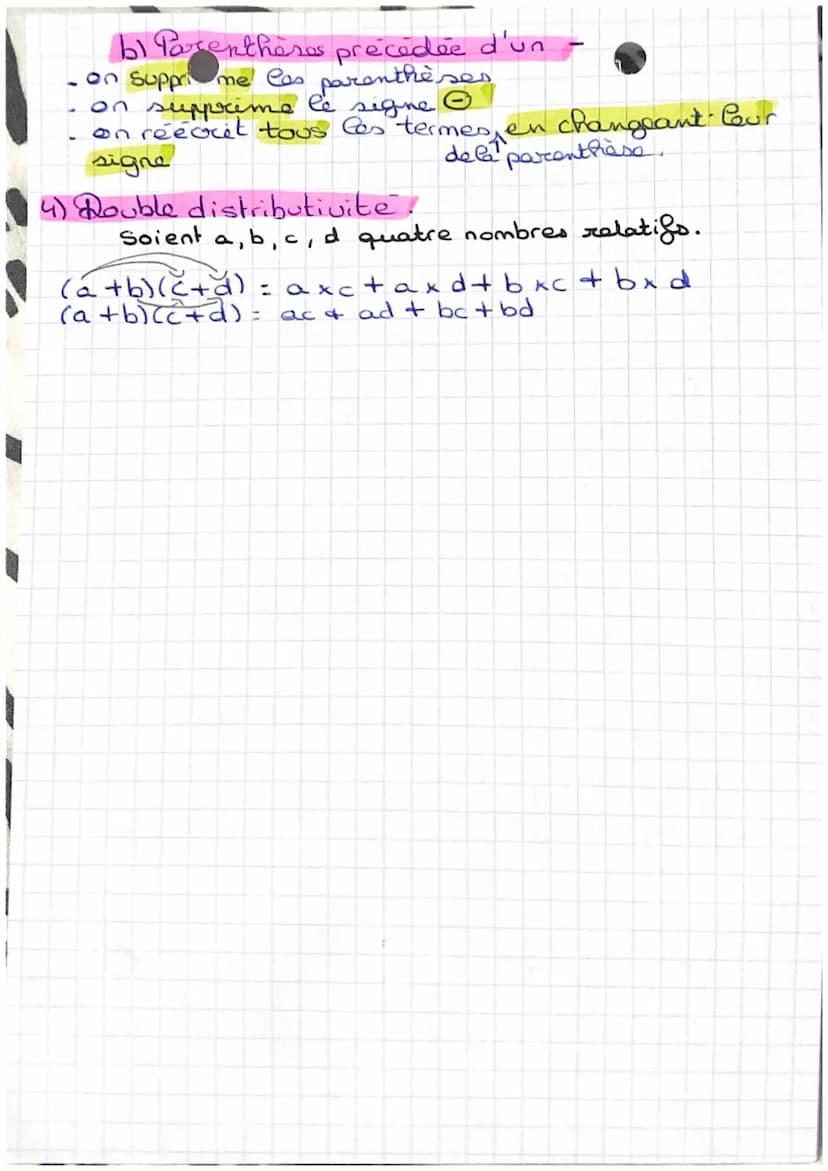 b) Parenthèses précédée d'un -
- on supprime les parenthèses
- on supprime le signe ⊖
- on réécrit tous les termes de la parenthèse en changeant leur
signe
4) Double distributivité :
Soient a, b, c, d quatre nombres relatifs.
(a+b)(c+d) = a×c + a×d + b×c + b×d
(a+b)(c+d) = ac + ad + bc + bd